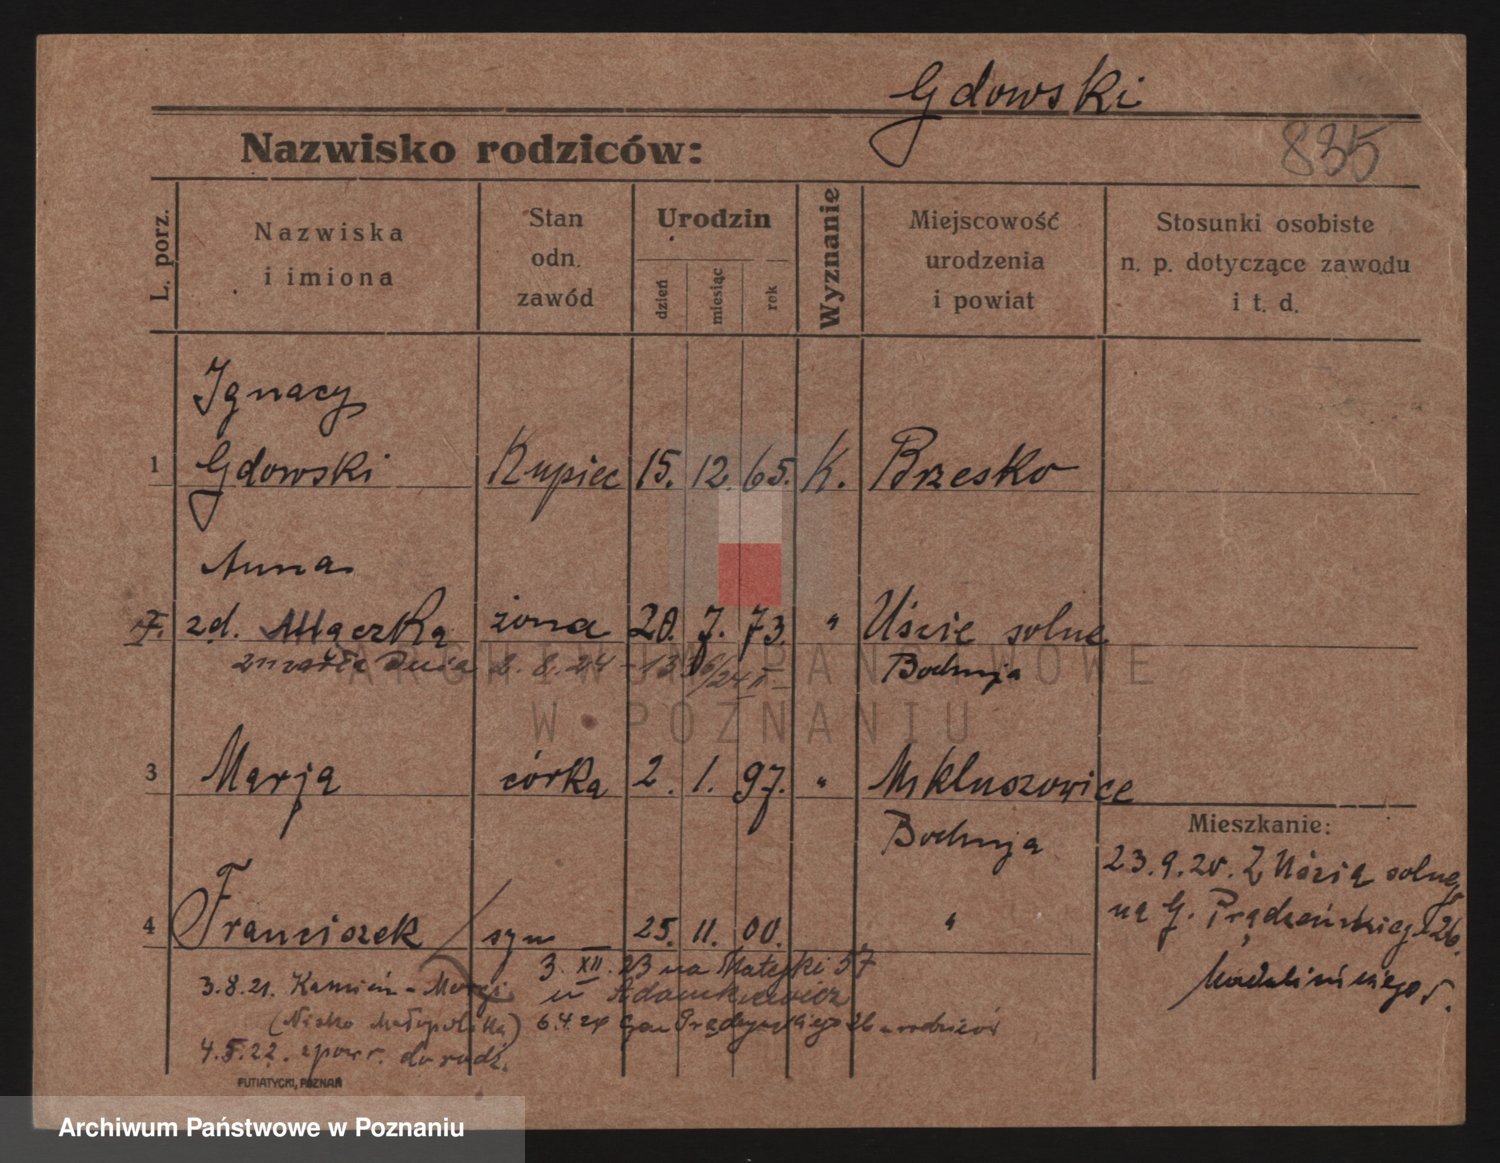 Gdowski
835
Nazwisko rodziców:
L. porz.
Nazwiska
i imiona
Stan
odn.
zawód
Urodzin
dzień
miesiąc
rok
Wyznanie
Miejscowość
urodzenia
i powiat
Stosunki osobiste
n. p. dotyczące zawodu
i t. d.
Ignacy
1 Gdowski Kupiec 15. 12. 65. K. Brzesko
Anna
zd. Mączka żona 20. 7. 73. " Uście solne
zmarła dnia 2. 8. 24 Bochnja
ARCHIWUM PAŃSTWOWE
W POZNANIU
3 Marja córka 2. 1. 97. " Mikluszowice
Bochnja
4 Franciszek syn 25. 11. 00. "
Mieszkanie:
23. 9. 20. Z Uścia solnego
na G. Prądzeńskiego 26.
3. XII. 23 na Matejki 57
u Adamkiewicz
3.8.21. Kamień -
(Nisko Małopolska)
6.4.24 Gen Prądzyńskiego 26 u rodziców
4.5.22. zpowr. do rodz.
PUTIATYCKI, POZNAŃ
Archiwum Państwowe w Poznaniu